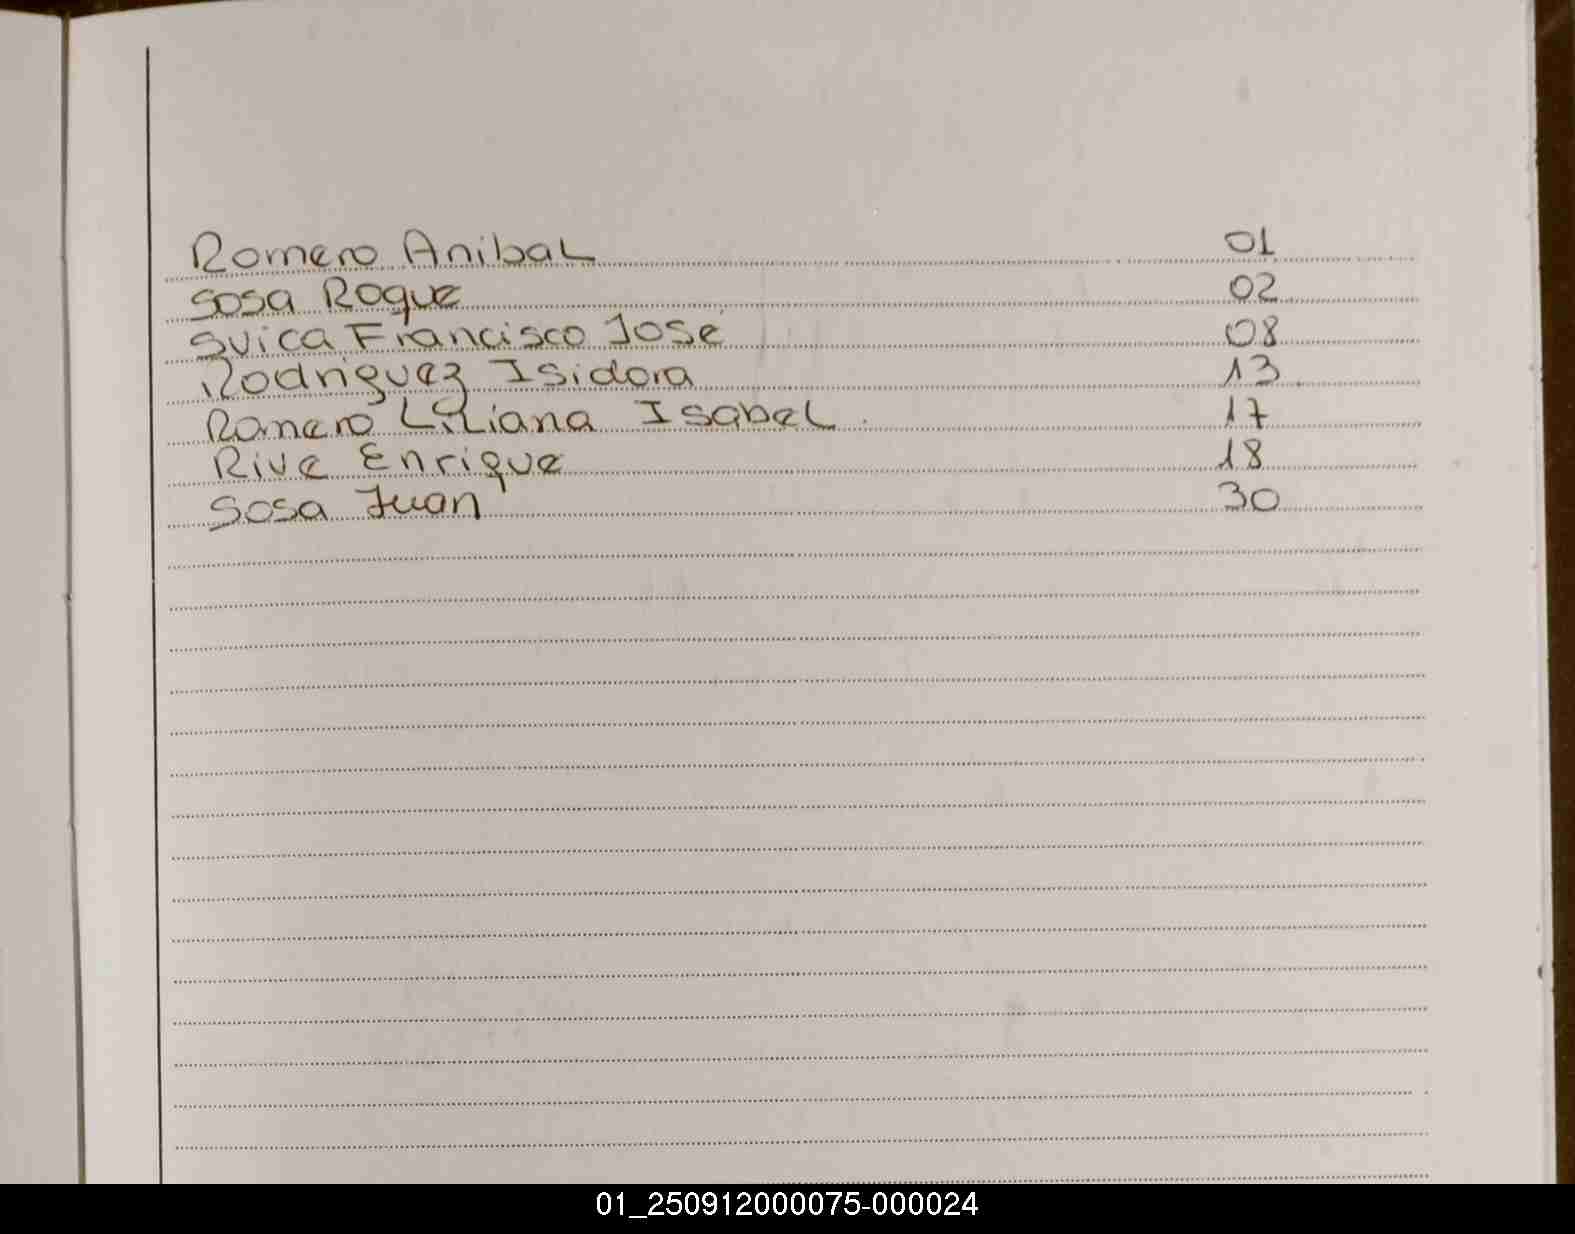 Romero Anibal 01
Sosa Roque 02
Suica Francisco José 08
Rodriguez Isidora 13
Romero Liliana Isabel 17
Rive Enrique 18
Sosa Juan 30
01_250912000075-000024